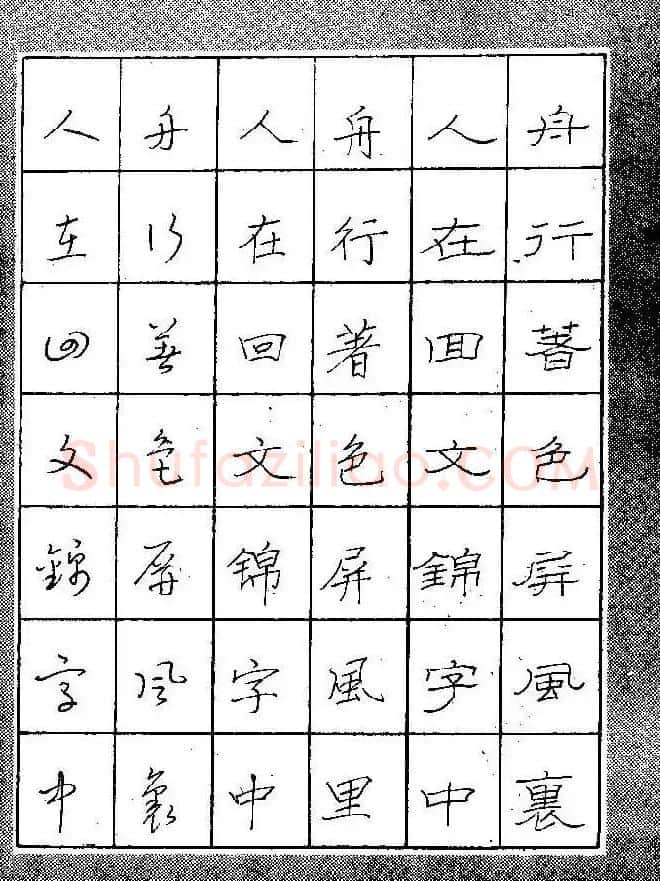 舟行著色屏風裏
人在回文錦字中
舟行著色屏風里
人在回文锦字中
舟行著色屏風裏
人在回文錦字中
Shufaziliao.COM